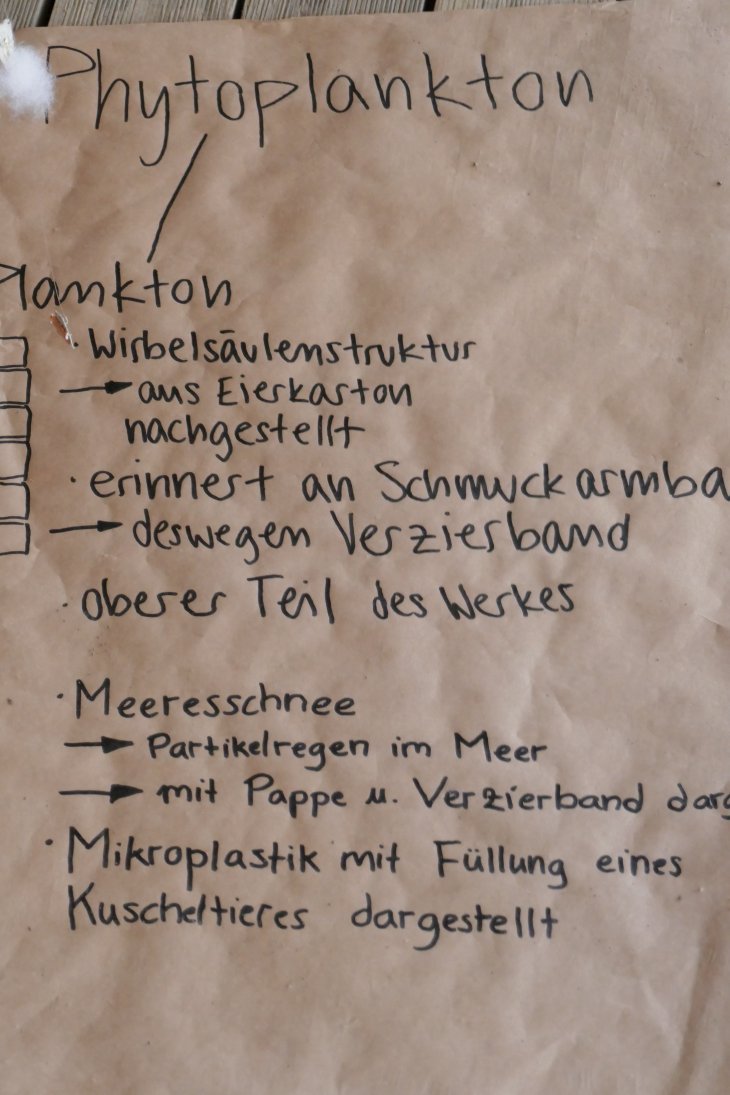 Phytoplankton
Plankton
· Wirbelsäulenstruktur
→ aus Eierkarton
nachgestellt
· erinnert an Schmuckarmba
→ deswegen Verzierband
· oberer Teil des Werkes
· Meeresschnee
→ Partikelregen im Meer
→ mit Pappe u. Verzierband darg
· Mikroplastik mit Füllung eines
Kuscheltieres dargestellt